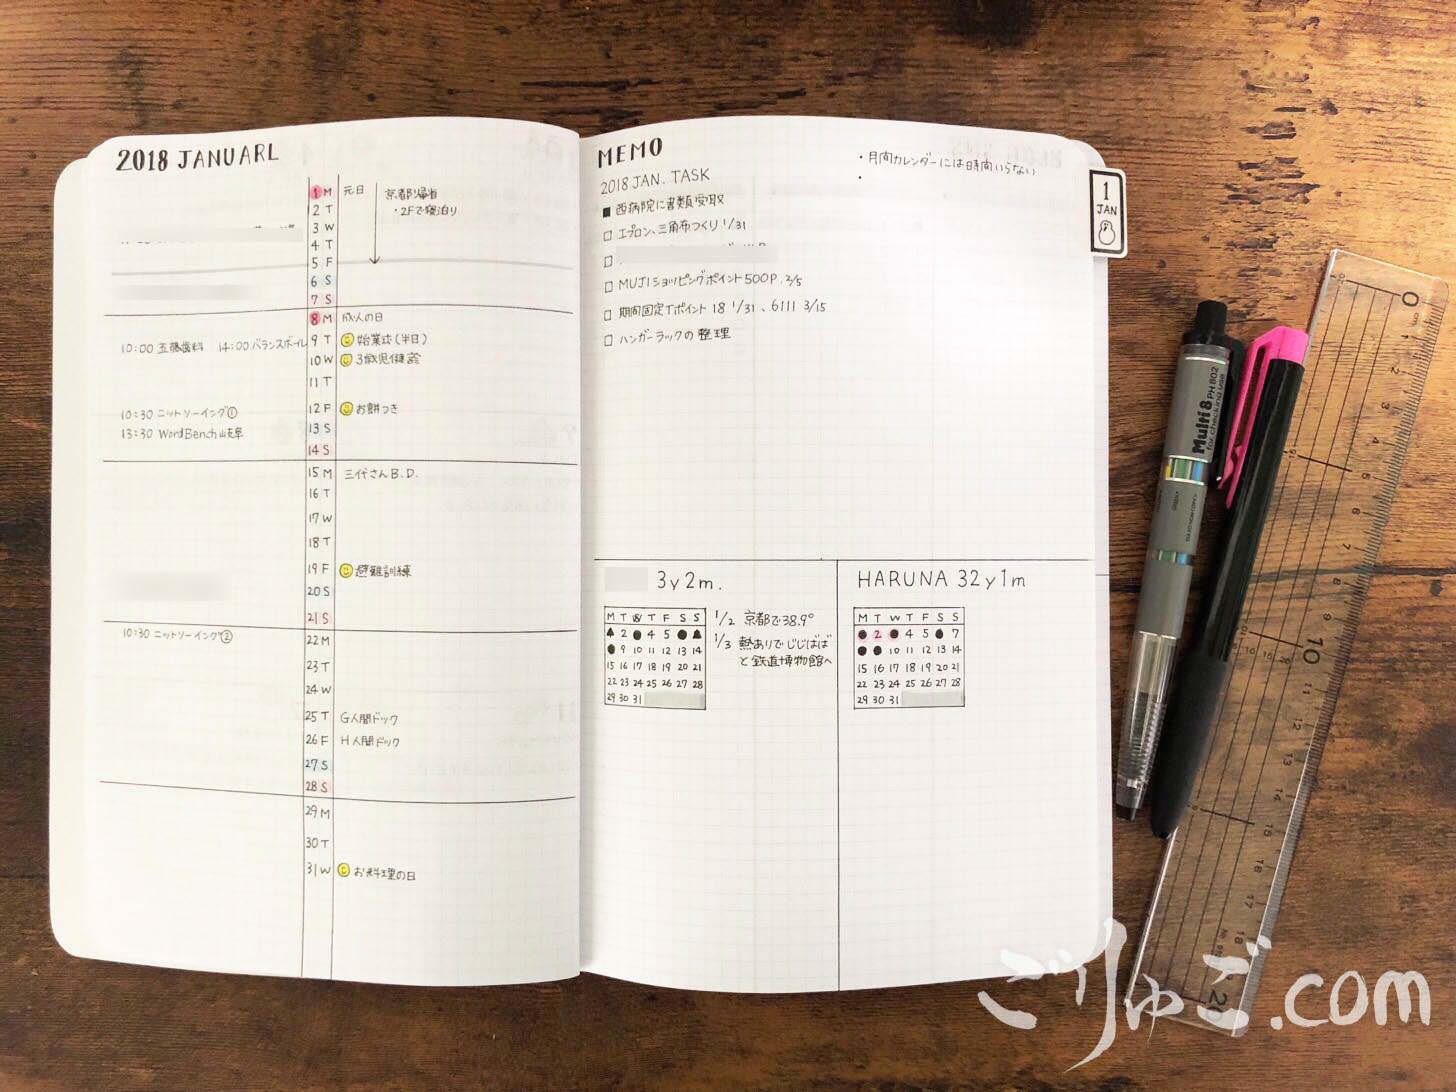 2018 JANUARL
1 M 元日
京都帰省
2 T
・2Fで寝泊り
3 W
4 T
5 F
6 S
7 S
8 M 成人の日
10:00 五藤歯科 14:00 バランスボール 9 T 始業式(半日)
10 W 3歳児健診
11 T
10:30 ニットソーイング① 12 F お餅つき
13:30 WordBench岐阜 13 S
14 S
15 M 三代さんB.D.
16 T
17 W
18 T
19 F 避難訓練
20 S
21 S
10:30 ニットソーイング② 22 M
23 T
24 W
25 T G人間ドック
26 F H人間ドック
27 S
28 S
29 M
30 T
31 W お料理の日
MEMO
2018 JAN. TASK
■ 西病院に書類受取
□ エプロン、三角布つくり 1/31
□
□ MUJIショッピングポイント500P. 2/5
□ 期間固定Tポイント 18 1/31、6111 3/15
□ ハンガーラックの整理
・月間カレンダーには時間いらない
・
1
JAN
3y2m.
M T W T F S S
2 ● 4 5 ●
● 9 10 11 12 13 14
15 16 17 18 19 20 21
22 23 24 25 26 27 28
29 30 31
1/2 京都で38.9°
1/3 熱ありでじじばば
と鉄道博物館へ
HARUNA 32y1m
M T W T F S S
● 2 ● 4 5 ● 7
● ● 10 11 12 13 14
15 16 17 18 19 20 21
22 23 24 25 26 27 28
29 30 31
Multi 8 PH 802
for checking use
0 1 2 3 4 5 6 7 8 9 10 11 12 13 14 15 16 17 18 20
ごりゅご.com